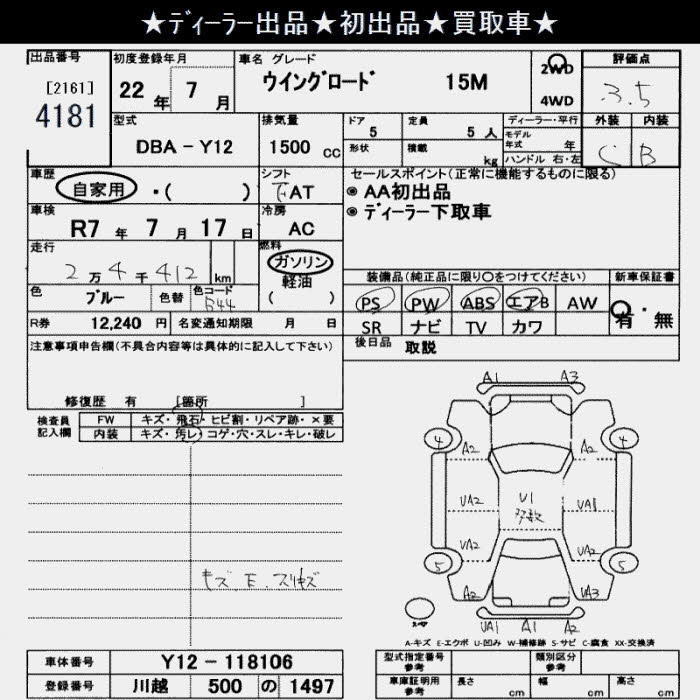 ★ディーラー出品★初出品★買取車★
出品番号 初度登録年月 車名 グレード 2WD 評価点
[2161] 22年 7月 ウイングロード 15M 4WD 3.5
4181
型式 排気量 ドア 定員 ディーラー・平行 外装 内装
DBA-Y12 1500 CC 5 5人 モデル年式 年 C B
形状 積載 kg ハンドル 右・左
車歴 シフト セールスポイント(正常に機能するものに限る)
自家用 ・( ) FAT ◉ AA初出品
車検 冷房 ◉ ディーラー下取車
R7年 7月 17日 AC
走行 燃料
2万4千412 km ガソリン
軽油
( )
装備品(純正品に限り○をつけてください) 新車保証書
色 ブルー 色替 色コード B44 PS PW ABS エアB AW 有・無
R券 12,240 円 名変通知期限 月 日 SR ナビ TV カワ
注意事項申告欄(不具合内容等は具体的に記入して下さい) 後日品 取説
修復歴 有 [箇所 ]
検査員記入欄 FW キズ・飛石・ヒビ割・リペア跡・×要
内装 キズ・汚レ・コゲ・穴・スレ・キレ・破レ
A1 A3
4 A2 A2 4
UA2 U1 多数 UA1
UA2 UA2
5 5
A2 UA3
UA1 A1 A2
キズ、E、スリキズ
スペア
A-キズ E-エクボ U-凹み W-補修跡 S-サビ C-腐食 XX-交換済
車体番号 Y12-118106 型式指定番号 参考 類別区分 参考
登録番号 川越 500 の 1497 車庫証明用 参考 長さ cm 幅 cm 高さ cm